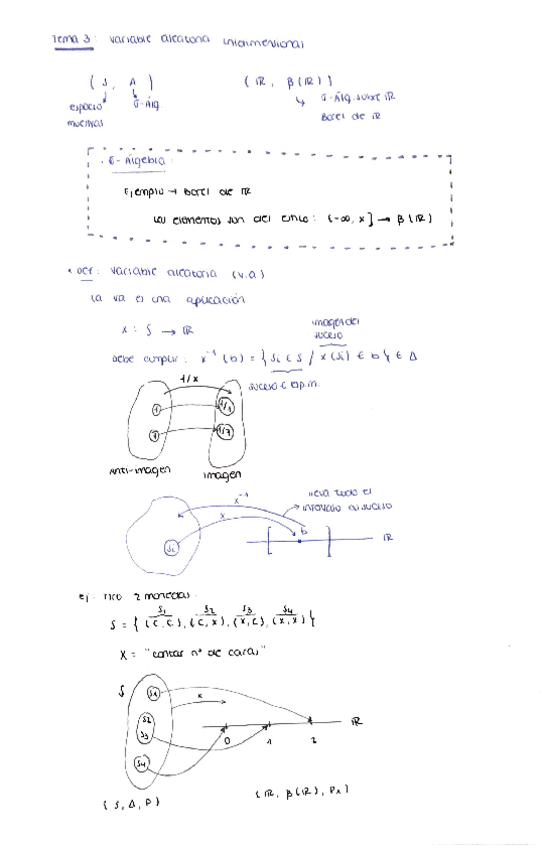 Tema 3: variable aleatoria unidimensional
(S, A) (ℝ, β(ℝ))
espacio muestras σ-Álg. ↳ σ-Álg. sobre ℝ
Borel de ℝ
· σ-Álgebra:
Ejemplo → Borel de ℝ
los elementos son del cinco: (-∞, x] → β(ℝ)
• DEF: variable aleatoria (v.a)
la va es una aplicación
x : S → ℝ
imagen del suceso
Debe cumplir: x⁻¹(b) = {Si ∈ S / x(Si) ∈ b} ∈ Δ
suceso ∈ esp.m.
1/x
1 1/1
7 1/7
Anti-imagen imagen
x⁻¹ lleva todo el intervalo al suceso
x
Si b ℝ
ej. Tiro 2 monedas.
S1 S2 S3 S4
S = {(c,c), (c,x), (x,c), (x,x)}
X = "contar nº de caras"
S S1 x
S2
S3 ℝ
0 1 2
S4
(S, Δ, P) (ℝ, β(ℝ), Px)